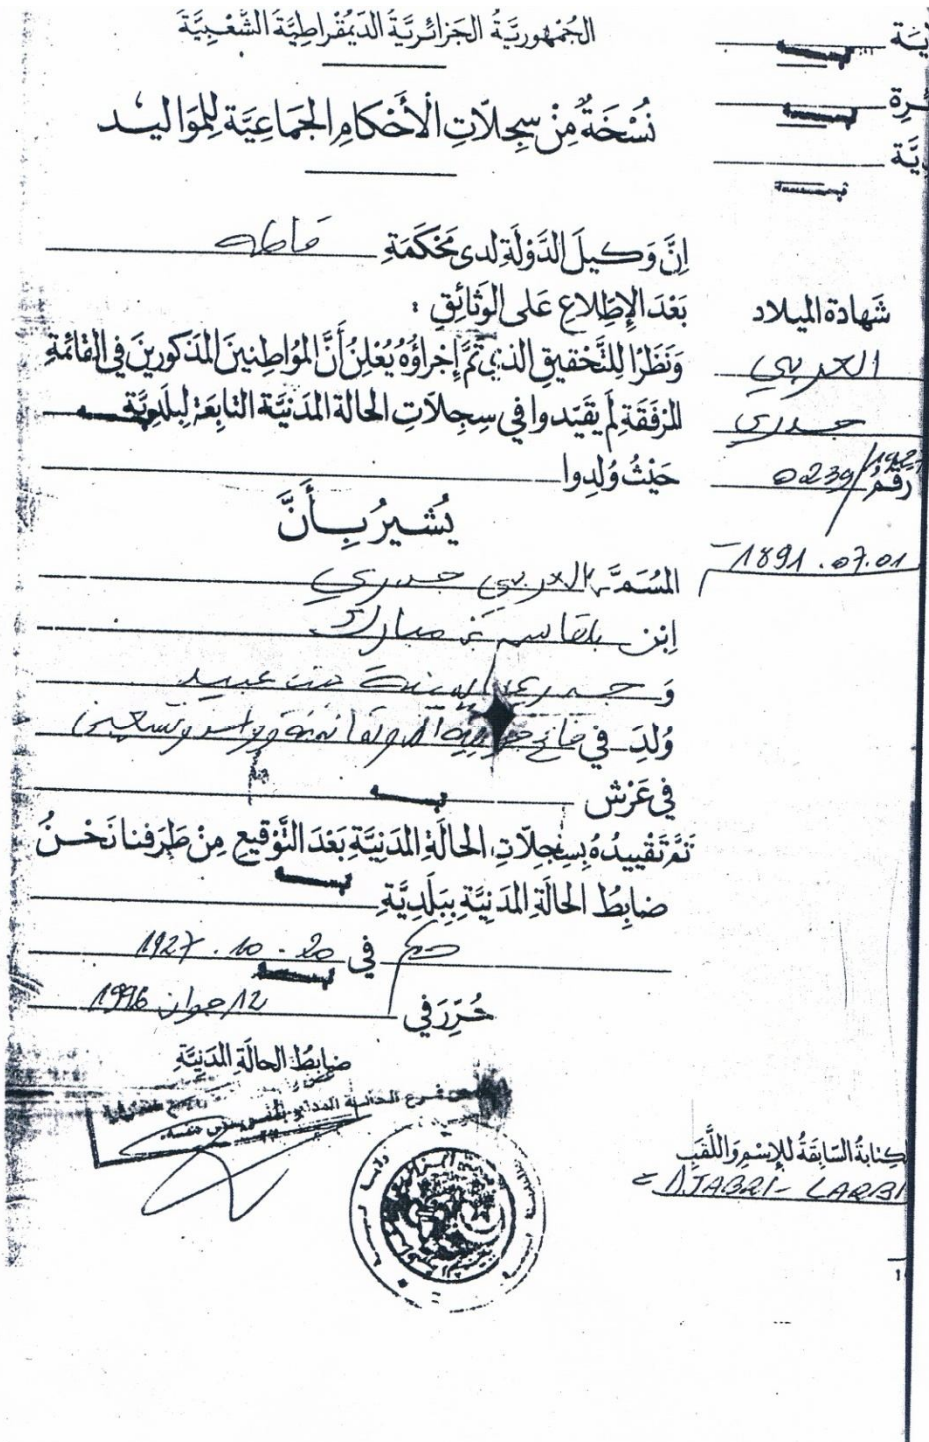 الجُمْهُورِيَّةُ الجَزَائِرِيَّةُ الدِّيمُقْرَاطِيَّةُ الشَّعْبِيَّةُ
نُسْخَةٌ مِنْ سِجِلَّاتِ الْأَحْكَامِ الجَمَاعِيَّة لِلمَوَاليد
إنَّ وَكيلَ الدَّوْلَةِ لدى مَحْكَمَةِ
بَعْدَ الإطِّلاعِ عَلى الوَثائِقِ :
وَنَظَرًا لِلتَّحْقيقِ الذي تَمَّ إجْراؤُهُ يُعْلِنُ أَنَّ المُوَاطِنينَ المَذكورينَ في القائمَةِ
المُرْفَقَةِ لَمْ يقَيّدوا في سِجِلَّاتِ الحالَة المَدَنيَّة التابعَة لِبلَديَّةِ
حَيْثُ وُلِدوا
يُشيرُ بِأَنَّ
المُسَمَّى العربي جدري
اِبْن بلقاسم بن مبارك
وَ بنت عبيد
وُلِدَ في وتسعين
في عَرْش تبسة
تَمَّ تَقْييدُهُ بِسِجِلَّاتِ الحالَةِ المَدَنِيَّةِ بَعْدَ التَّوْقيعِ مِنْ طَرَفنا نَحْنُ
ضابِطُ الحالَةِ المَدَنِيَّةِ بِبَلَدِيَّةِ تبسة
في 20 . 10 . 1927
تبسة
حُرِّرَ في 12 جوان 1996
ضابِطُ الحالَةِ المَدَنِيَّةِ
تبسة
تبسة
تبسة
شَهادة الميلاد
العربي
جدري
رَقْمُ 0239/1927
1891.07.01
الكِتابةُ السّابِقَةُ لِلإسْمِ وَاللَّقَبِ
= DJABRI - LARBI